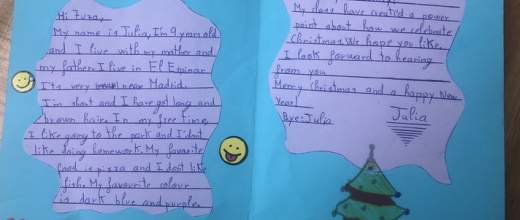 Hi Zuza,
My name is Julia, I'm 9 years old
and I live with my mother and
my father. I live in El Espinar
It's very near Madrid.
I'm short and I have got long and
brown hair. In my free time,
I like going to the park and I don't
like doing homework. My favourite
food is pizza and I don't like
fish. My favourite colour
is dark blue and purple.
My class have created a power
point about how we celebrate
Christmas. We hope you like.
I look forward to hearing
from you
Merry Christmas and a happy New
Year!
Bye: Julia
Julia